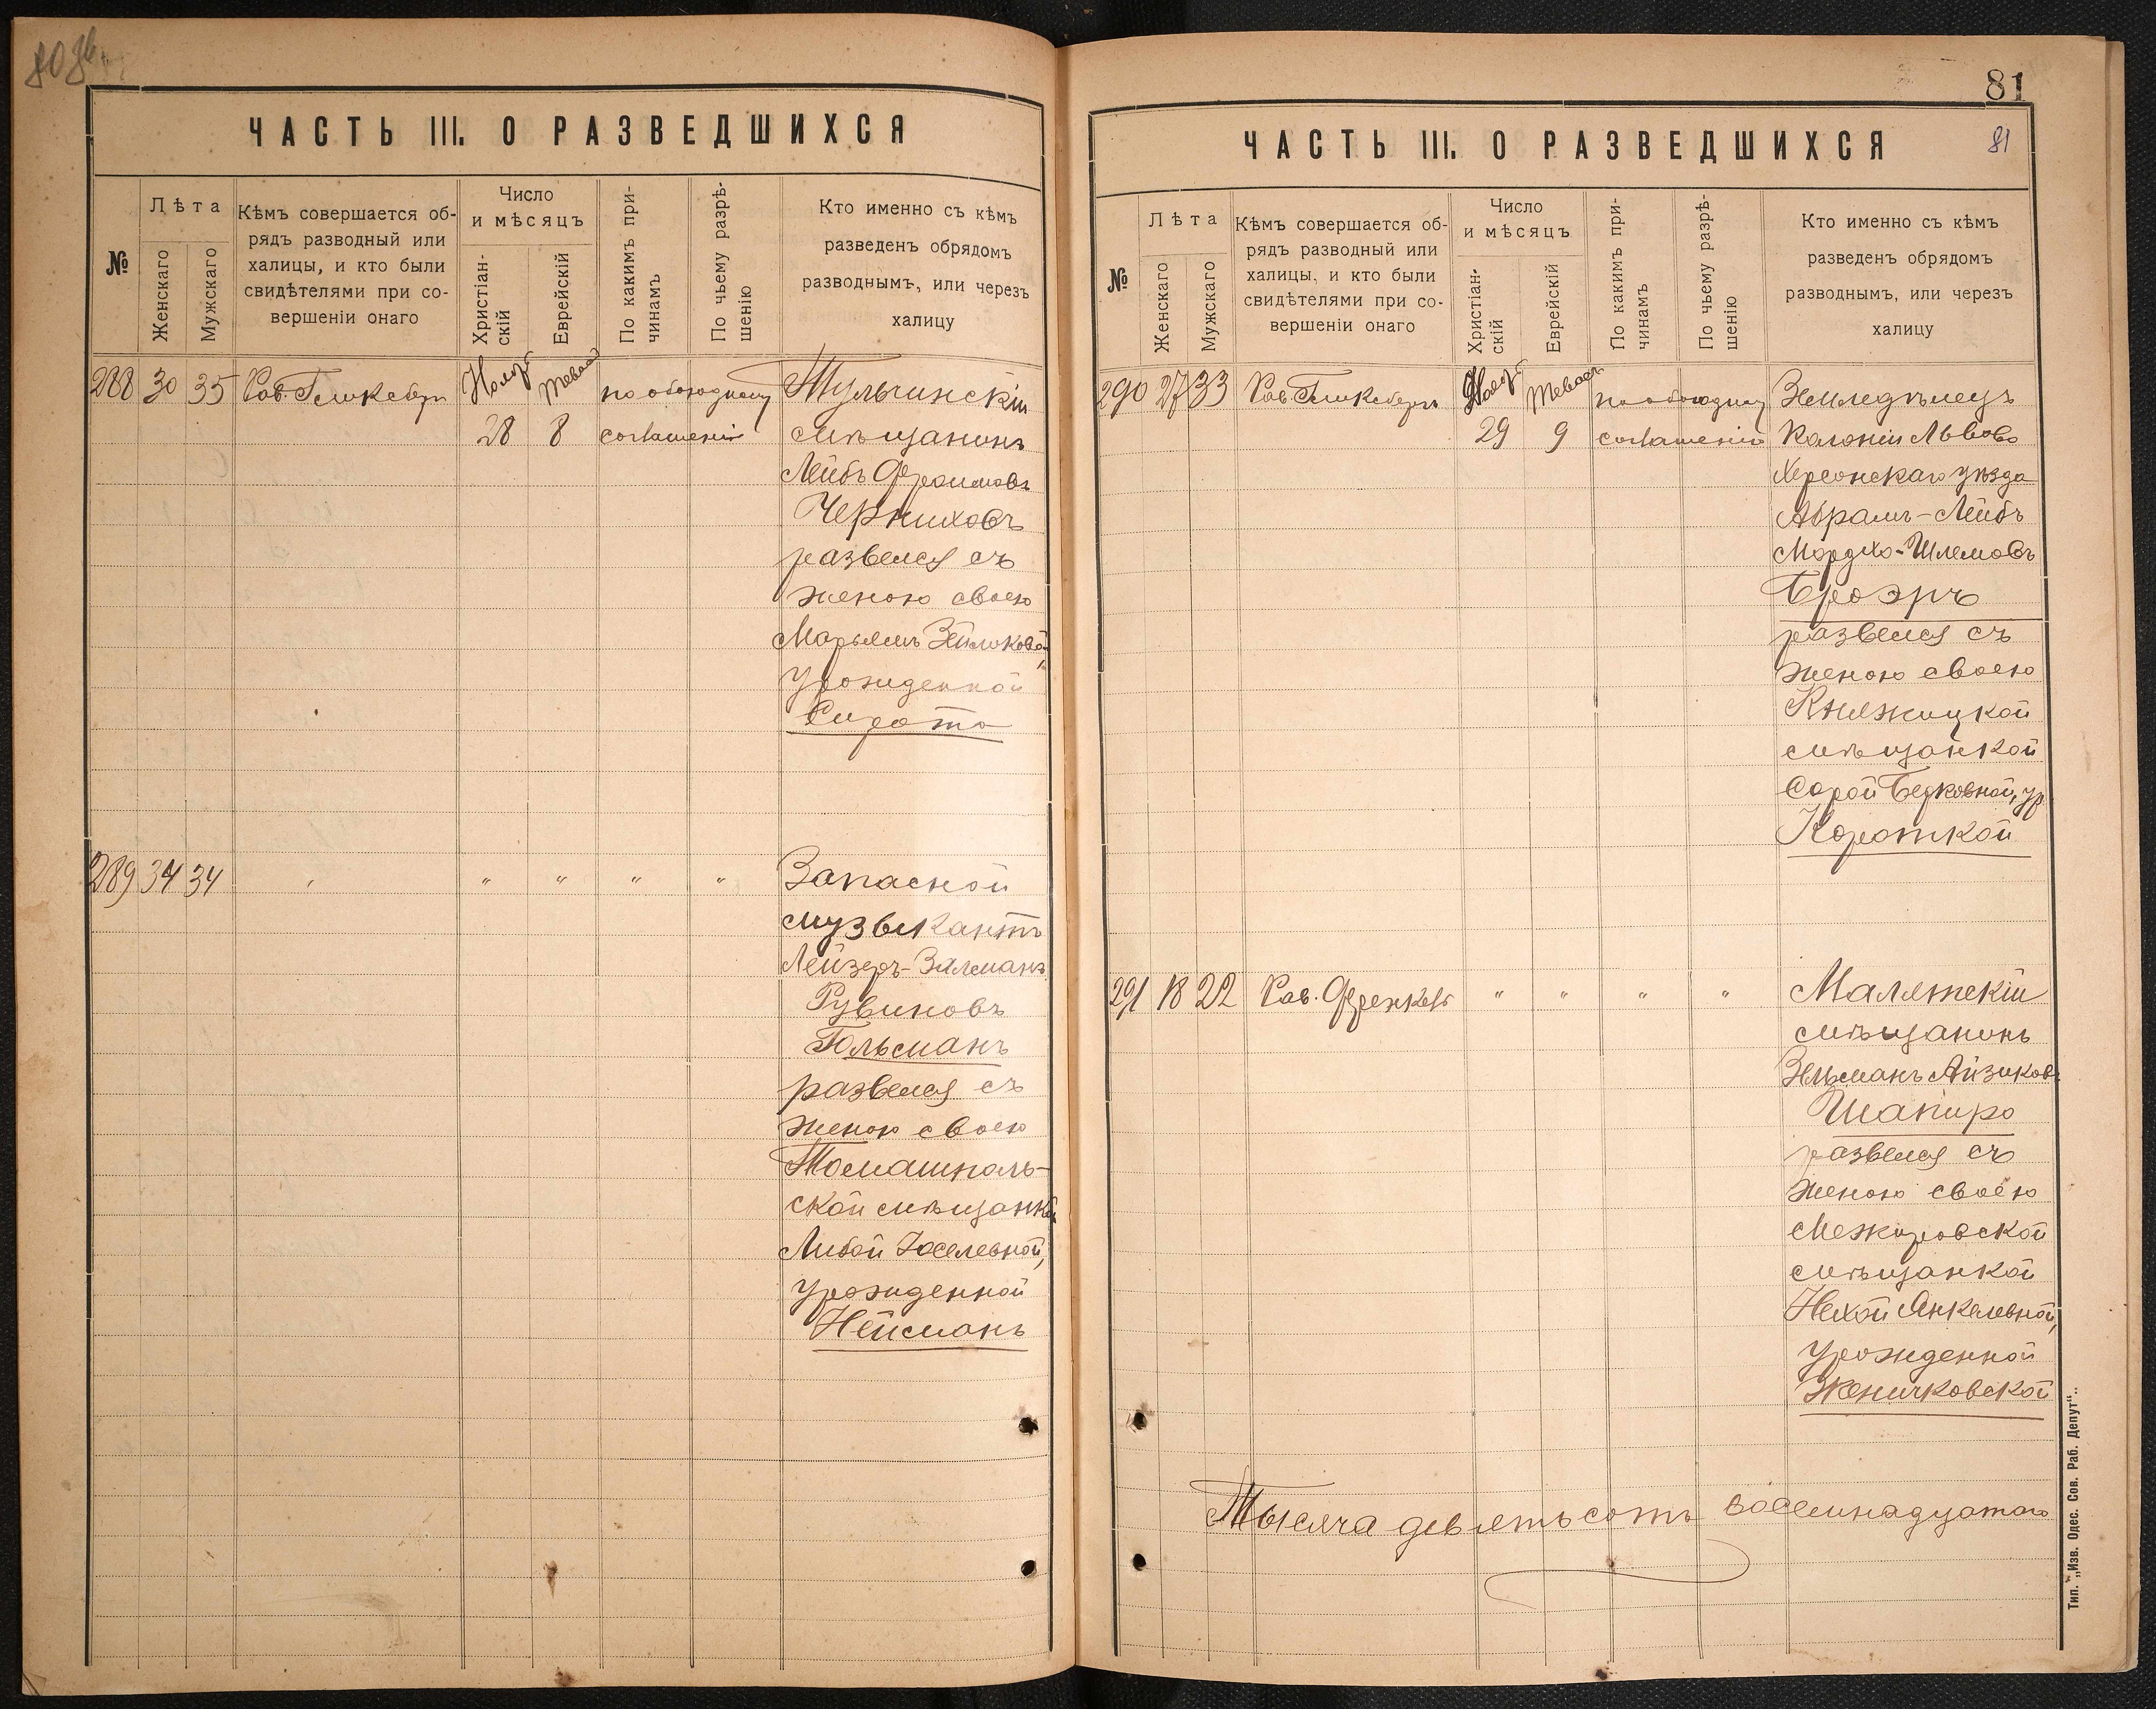 80 об.
ЧАСТЬ III. О РАЗВЕДШИХСЯ
№
Лѣта
Женскаго
Мужскаго
Кѣмъ совершается об-
рядъ разводный или
халицы, и кто были
свидѣтелями при со-
вершеніи онаго
Число
и мѣсяцъ
Христіан-
скій
Еврейскій
По какимъ при-
чинамъ
По чьему разрѣ-
шенію
Кто именно съ кѣмъ
разведенъ обрядомъ
разводнымъ, или черезъ
халицу
288 30 35 Рав. Нояб. Тевета по обоюдному Тульчинскій
28 8 соглашенію мѣщанинъ
Лейбъ Фроимовъ
Черниховъ
развелся съ
женою своею
Марьемъ Зейликовой,
урожденной
Сирота
289 34 34 " " " " " Запасной
музыкантъ
Лейзеръ-Залманъ
Рувиновъ
Гольсманъ
развелся съ
женою своею
Томашполь-
ской мѣщанкой
Либой Іоселевной,
урожденной
Нейсманъ
81
ЧАСТЬ III. О РАЗВЕДШИХСЯ
81
№
Лѣта
Женскаго
Мужскаго
Кѣмъ совершается об-
рядъ разводный или
халицы, и кто были
свидѣтелями при со-
вершеніи онаго
Число
и мѣсяцъ
Христіан-
скій
Еврейскій
По какимъ при-
чинамъ
По чьему разрѣ-
шенію
Кто именно съ кѣмъ
разведенъ обрядомъ
разводнымъ, или черезъ
халицу
290 27 33 Рав. Нояб. Тевета по обоюдному Земледѣлецъ
29 9 соглашенію Колоніи Львово
Херсонскаго уѣзда
Абрамъ-Лейбъ
Мордко-Шлемовъ
Броэръ
развелся съ
женою своею
Княжицкой
мѣщанкой
Сарой Берковной, ур.
Короткой
291 18 22 Рав. Френкель " " " " Малятскій
мѣщанинъ
Зельманъ Айзиковъ
Шапиро
развелся съ
женою своею
Межировской
мѣщанкой
Нехой Янкелевной,
урожденной
Женичковской
Тысяча девятьсотъ восемнадцатаго
Тип. „Изв. Одес. Сов. Раб. Депут“.